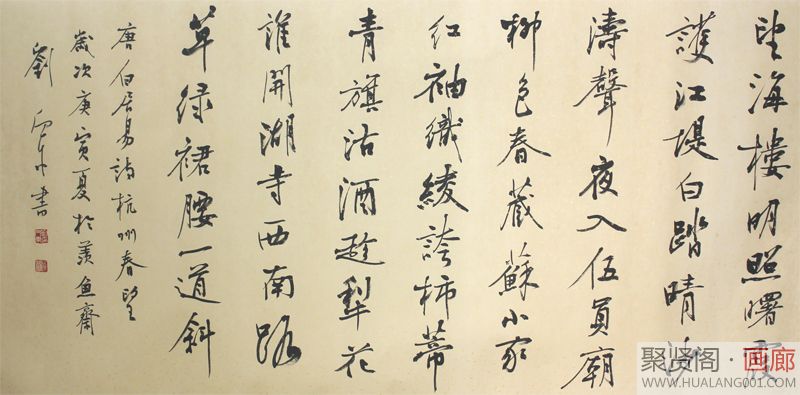 望海樓明照曙霞
護江堤白踏晴沙
濤聲夜入伍員廟
柳色春藏蘇小家
红袖織綾誇柿蒂
青旗沽酒趁梨花
誰開湖寺西南路
草绿裙腰一道斜
唐白居易詩杭州春望
歲次庚寅夏於羨魚齋
劉書
聚贤阁·画廊
WWW.HUALANG001.COM